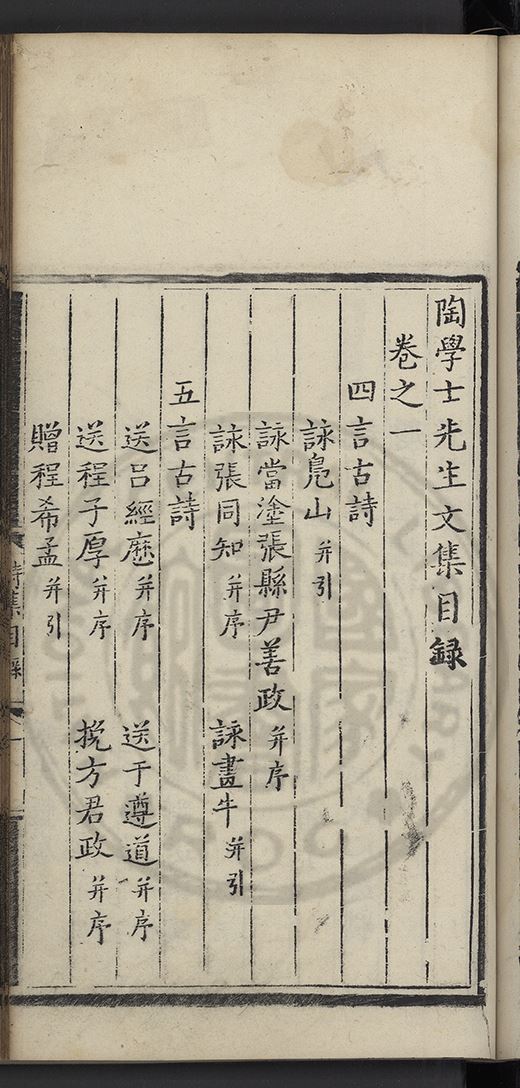 陶學士先生文集目録
卷之一
四言古詩
詠鳧山 并引
詠當塗張縣尹善政 并序
詠張同知 并序 詠畫牛 并引
五言古詩
送吕經歷 并序 送于遵道 并序
送程子厚 并序 挽方君政 并序
贈程希孟 并引
詩集目録 一